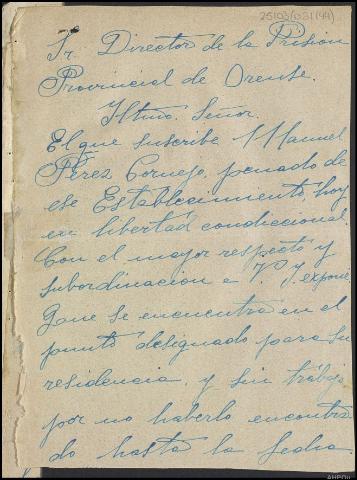 25103/031(44)
Sr. Director de la Prisión
Provincial de Orense.
Iltmo. Señor.
El que suscribe Manuel
Pérez Cornejo, penado de
ese Establecimiento, hoy
en libertad condiccional.
Con el mayor respecto y
subordinacion a V. I. expone
Que se encuentra en el
punto designado para su
residencia, y sin trabajo
por no haberlo encontra
do hasta la fecha.
AHPOu